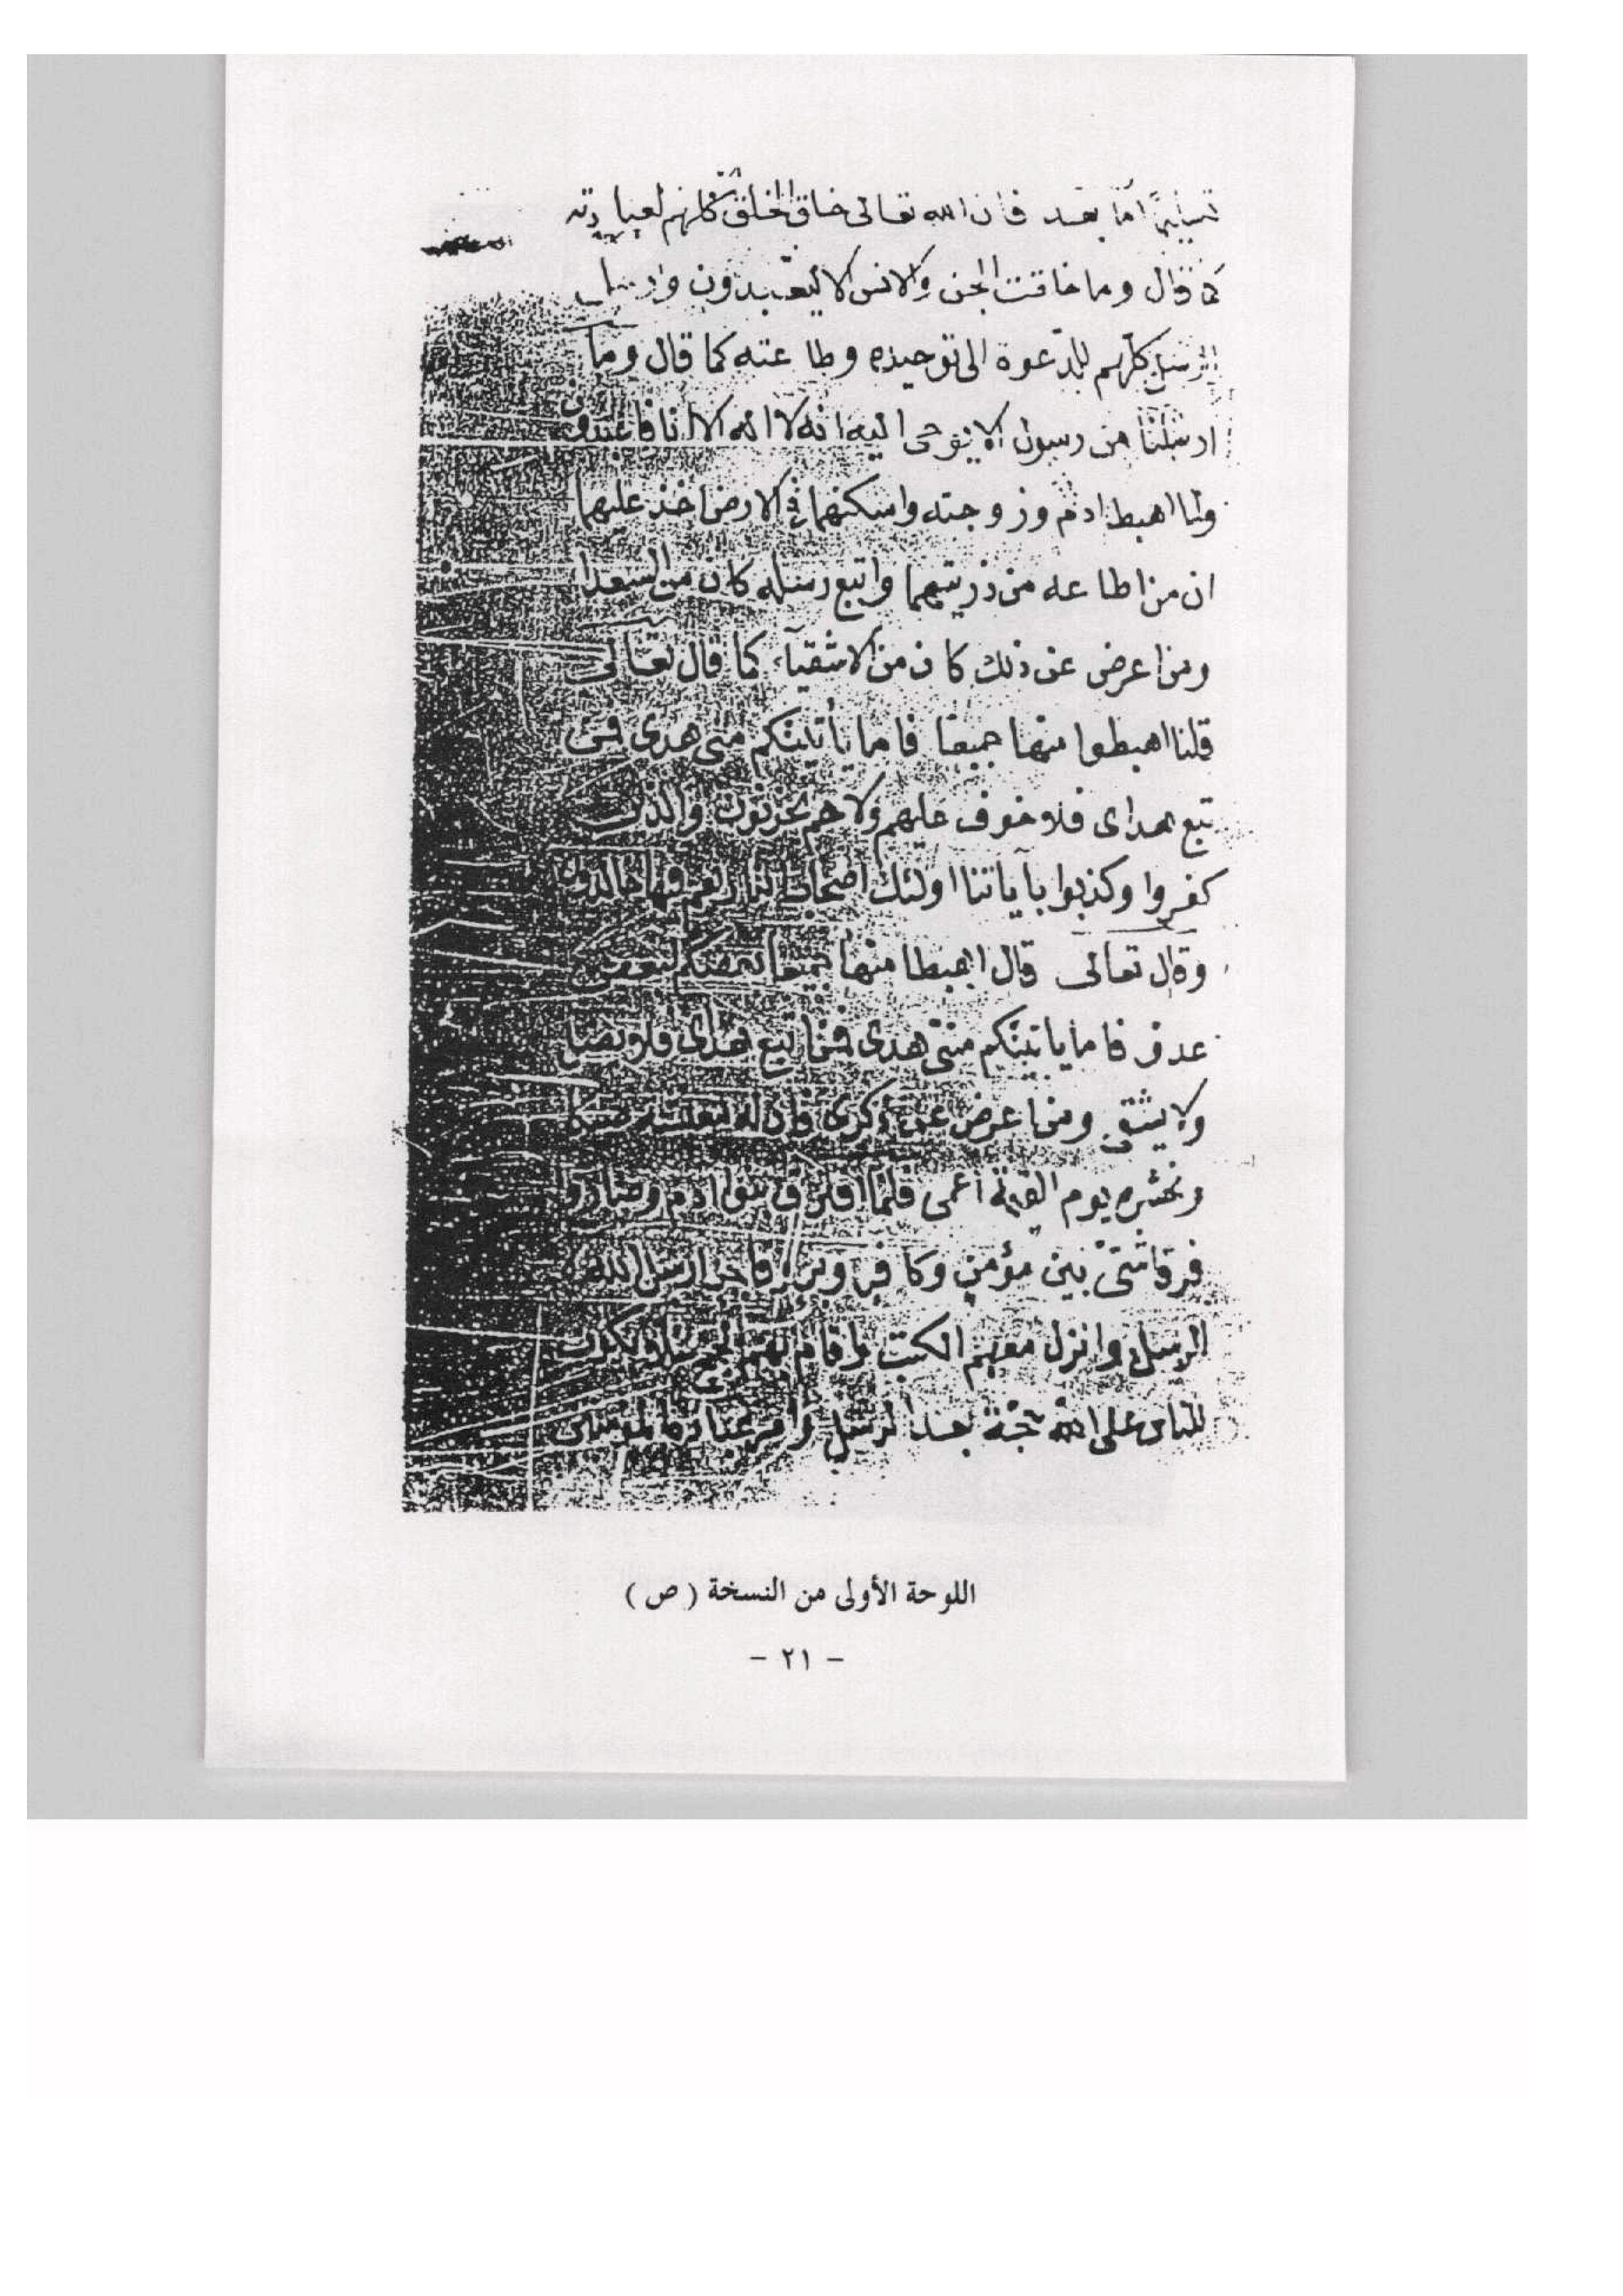 تسليمًا اما بعد فان الله تعالى خلق الخلق كلهم لعبادته
كما قال وما خلقت الجن والانس الا ليعبدون وارسل
الرسل كلهم للدعوة الى توحيده وطاعته كما قال وما
ارسلنا من رسول الا يوحى اليه انه لا اله الا انا فاعبدون
ولما اهبط ادم وزوجته واسكنهما في الارض اخذ عليهما
ان من اطاعه من ذريتهما واتبع رسله كان من السعدا
ومن اعرض عن ذلك كان من الاشقيآء كما قال تعالى
قلنا اهبطوا منها جميعا فاما يأتينكم منى هدى فمن
تبع هداى فلا خوف عليهم ولا هم يحزنون والذين
كفروا وكذبوا بآياتنا اولئك اصحاب النار هم فيها خالدون
وقال تعالى قال اهبطا منها جميعا بعضكم لبعض
عدو فاما ياتينكم منى هدى فمن اتبع هداى فلا يضل
ولا يشقى ومن اعرض عن ذكرى فان له معيشة ضنكا
ونحشره يوم القيمة أعمى فلما افترق بنوا ادم وصاروا
فرقا شتى بين مؤمن وكافر وبر وفاجر ارسل الله
الرسل وانزل معهم الكتب واقام بهم الحجة لئلا يكون
للناس على الله حجة بعد الرسل وامر عباده المؤمنين
اللوحة الأولى من النسخة ( ص )
- ٢١ -